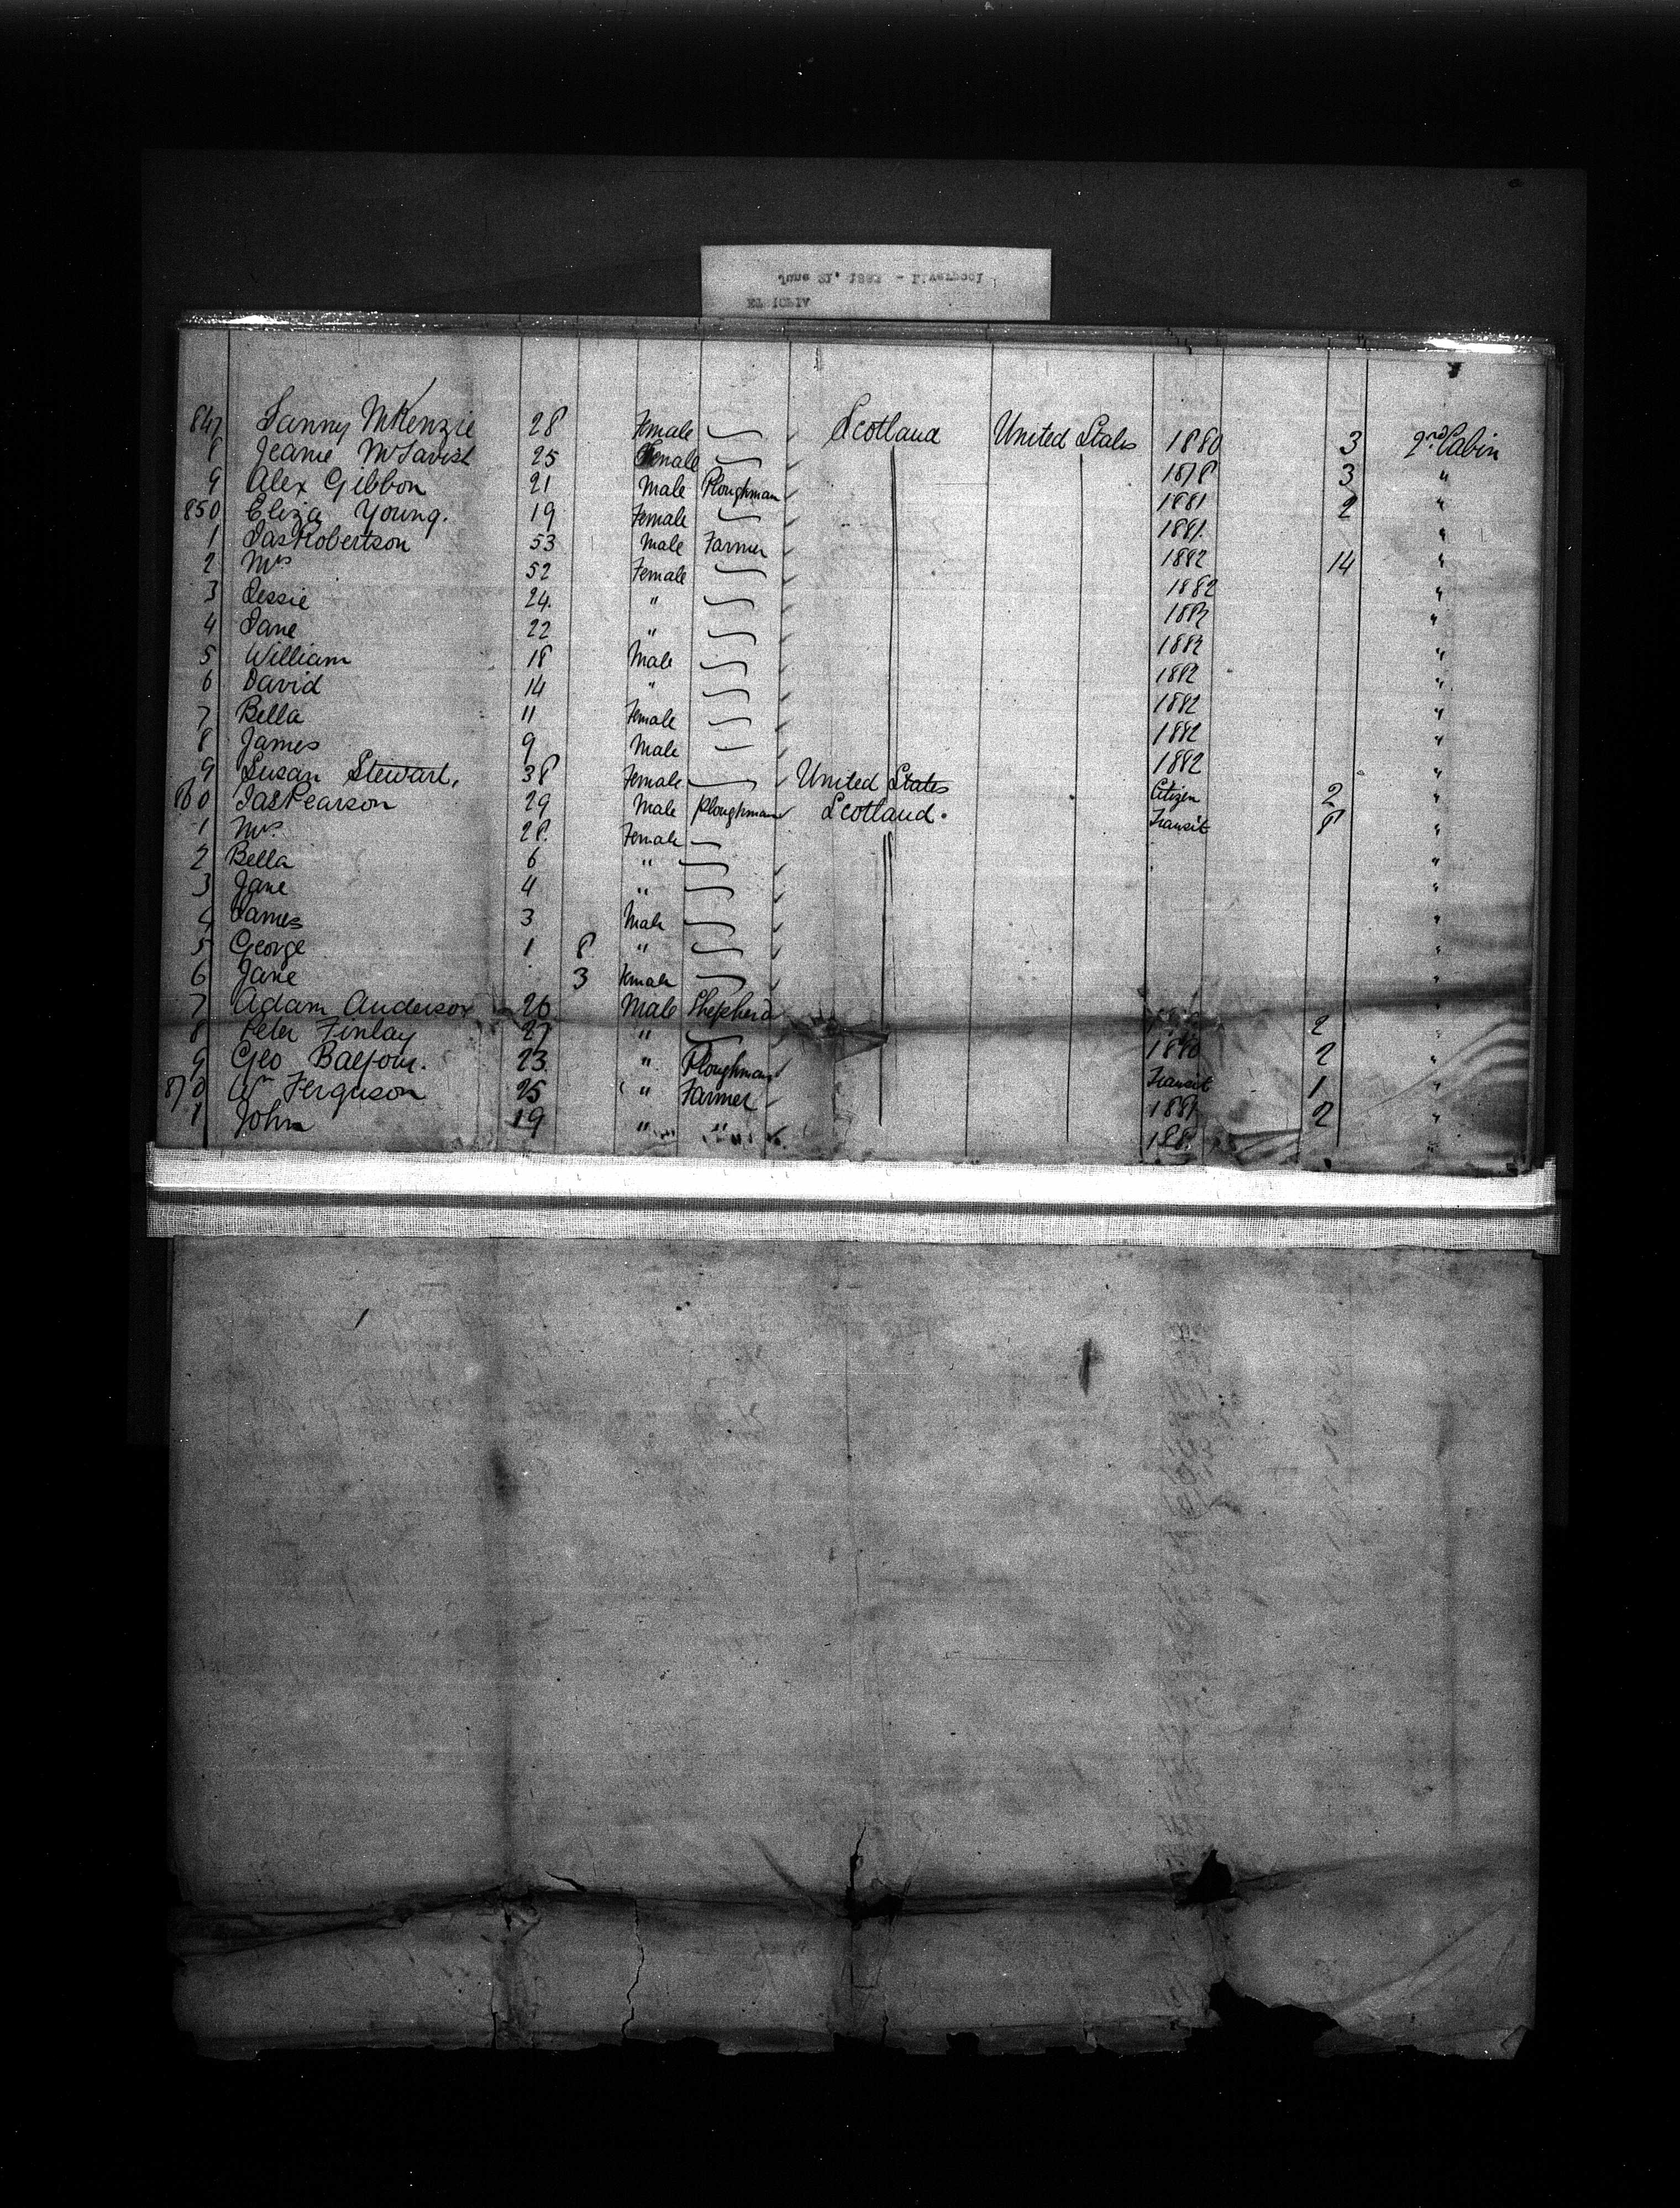 847 Fanny McKenzie 28 Female Scotland United States 1880 3 2nd Cabin
8 Jeanie McTavish 25 Female 1878 3 "
9 Alex Gibbon 21 Male Ploughman 1881 2 "
850 Eliza Young. 19 Female 1881. "
1 Jas Robertson 53 Male Farmer 1882 14 "
2 Mrs 52 Female 1882 "
3 Jessie 24. " 1882 "
4 Jane 22 " 1882 "
5 William 18 Male 1882 "
6 David 14 " 1882 "
7 Bella 11 Female 1882 "
8 James 9 Male 1882 "
9 Susan Stewart. 38 Female United States Citizen 2 "
860 Jas Pearson 29 Male Ploughman Scotland. Transit 8 "
1 Mrs. 28. Female "
2 Bella 6 " "
3 Jane 4 " "
4 James 3 Male "
5 George 1 8 " "
6 Jane 3 Female "
7 Adam Anderson 26 Male Shepherd 2 "
8 Peter Finlay 27 " 1880 2 "
9 Geo Balfour. 23. " Ploughman Transit 1 "
870 Wm Ferguson 25 " Farmer 1881 2 "
1 John 19 " " 188 "